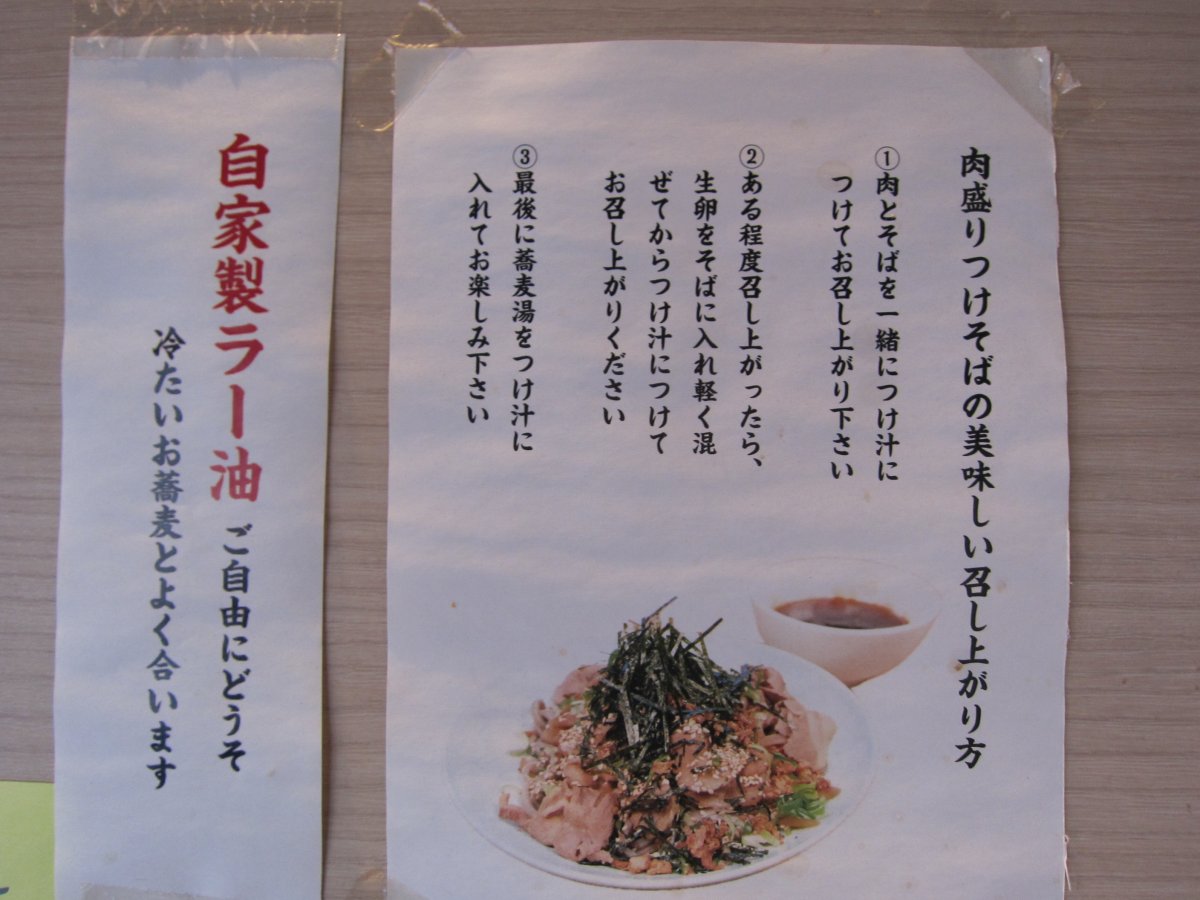 肉盛りつけそばの美味しい召し上がり方
①肉とそばを一緒につけ汁に
つけてお召し上がり下さい
②ある程度召し上がったら、
生卵をそばに入れ軽く混
ぜてからつけ汁につけて
お召し上がりください
③最後に蕎麦湯をつけ汁に
入れてお楽しみ下さい
自家製ラー油 ご自由にどうぞ
冷たいお蕎麦とよく合います